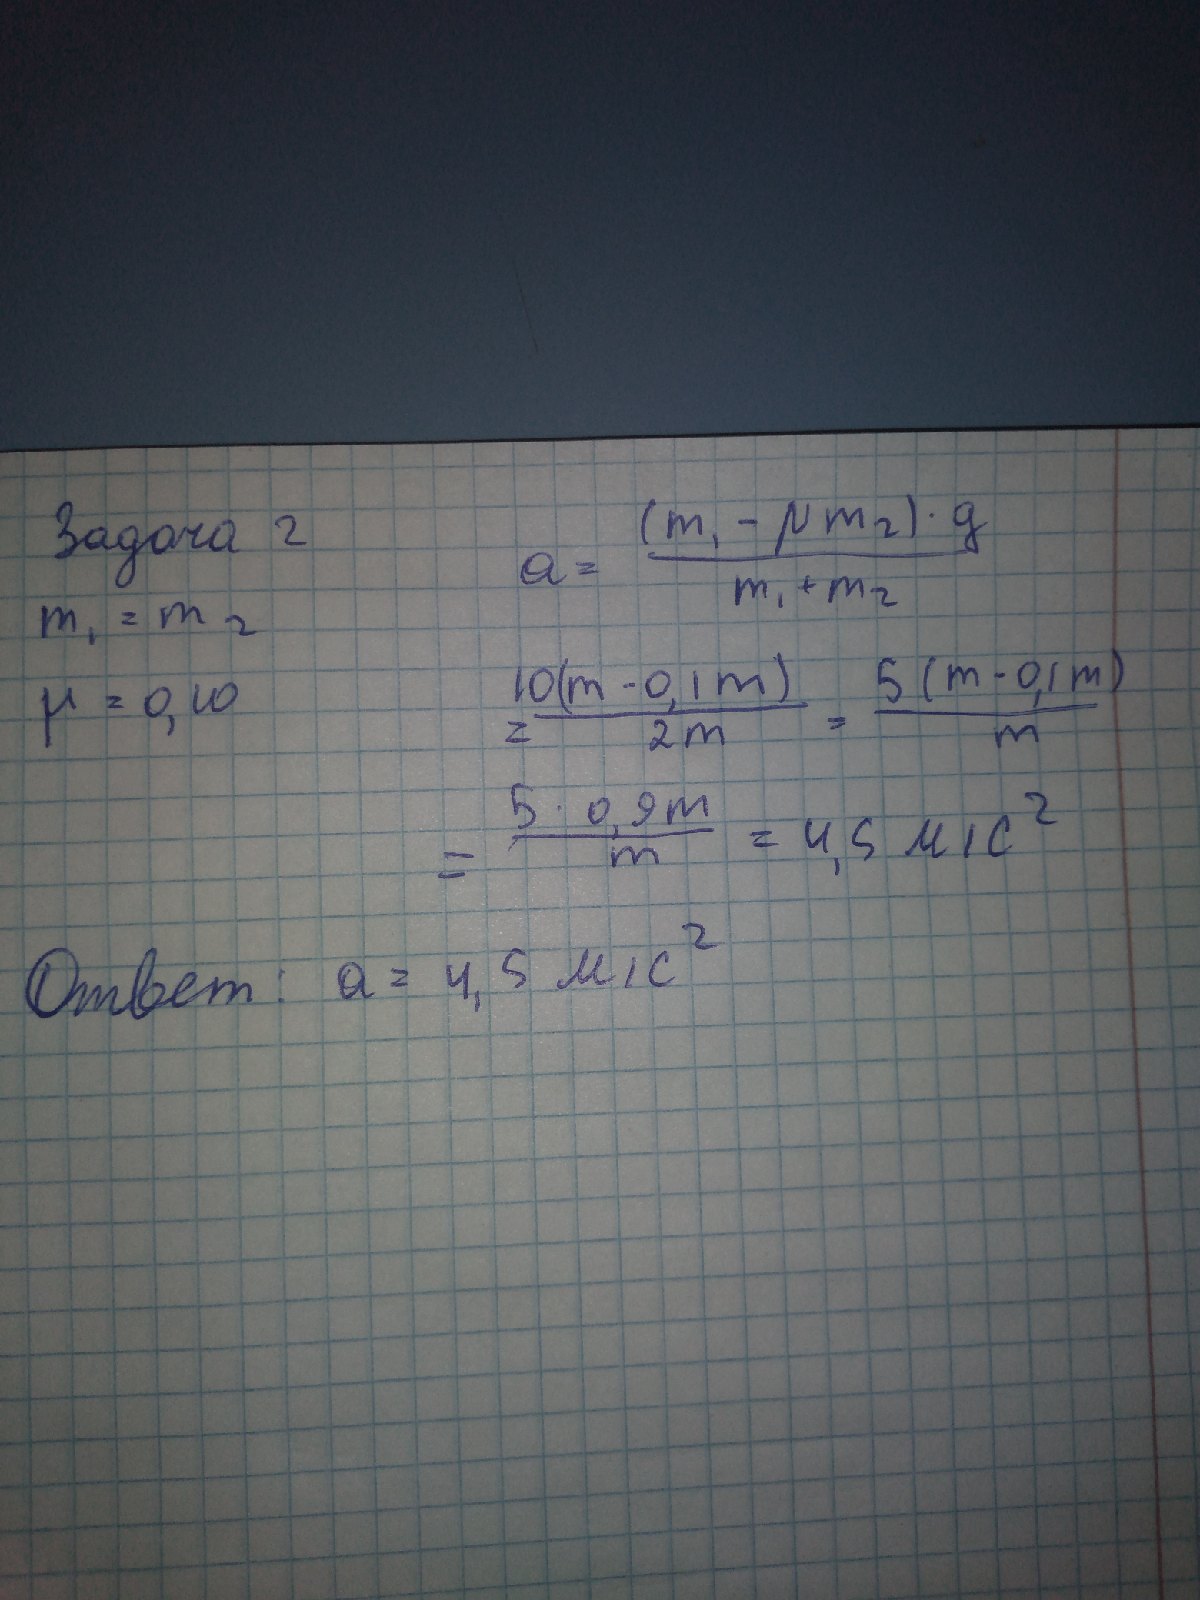 Задача 2
m₁ = m₂
μ = 0,10
a = (m₁ - μm₂)·g / m₁+m₂
= 10(m - 0,1m) / 2m = 5(m - 0,1m) / m
= 5 · 0,9m / m = 4,5 м/с²
Ответ: a = 4,5 м/с²